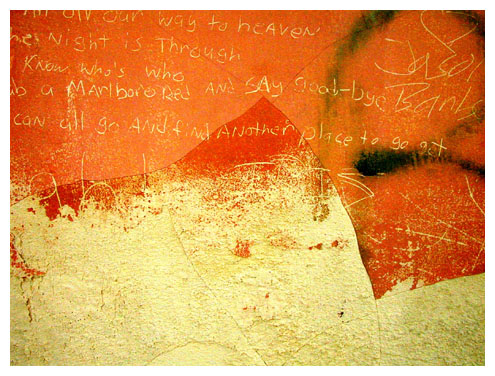 all our way to heaven
he Night is Through
Know who's who
b a Marlboro Red And SAy Good-bye
can all go And find Another place to go get